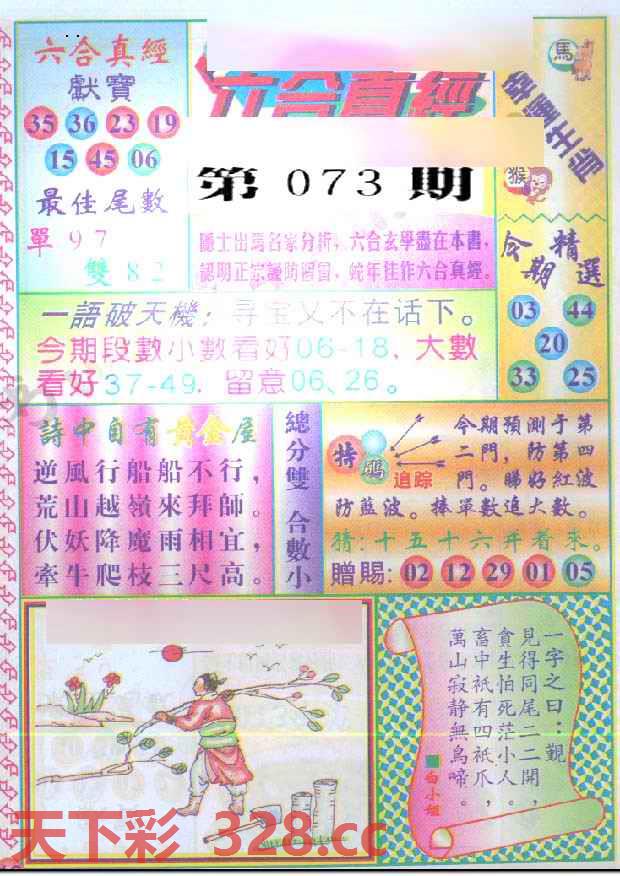 六合真經
獻寶
35 36 23 19
15 45 06
最佳尾數
單97
雙82
六合真經
第073期
六合玄學盡在本書，
蛇年佳作六合真經。
馬
猴
今期精選
03 44
20
33 25
一語破天機：尋宝又不在话下。
今期段數小數看好06-18、大數
看好37-49，留意06、26。
詩中自有黃金屋
逆風行船船不行，
荒山越嶺來拜師。
伏妖降魔雨相宜，
牽牛爬枝三尺高。
總分雙 合數小
特碼
追踪
今期預測于第
二門，防第四
門。睇好紅波
防藍波。捧單數追大數。
猜：十五十六年看來。
贈賜：02 12 29 01 05
一字之曰：觀
見得同尾二二開，
貪生怕死茫小人。
畜中祇有四祇爪，
萬山寂静無鳥啼。
白小姐
天下彩 328.cc